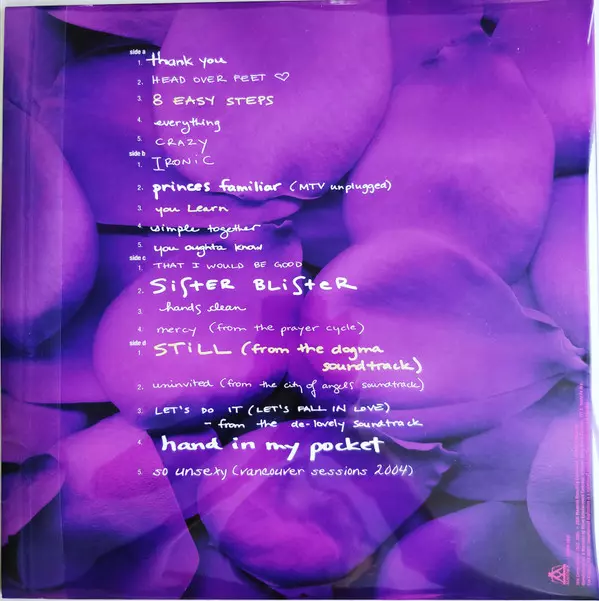 side a
1. thank you
2. HEAD OVER FEET ♡
3. 8 EASY STEPS
4. everything
5. CRAZY
side b
1. IRONIC
2. princes familiar (MTV unplugged)
3. you Learn
4. simple together
5. you oughta know
side c
1. THAT I WOULD BE GOOD
2. SiSteR BLiSteR
3. hands clean
4. mercy (from the prayer cycle)
side d
1. STiLL (from the dogma
soundtrack)
2. uninvited (from the city of angels soundtrack)
3. LET'S DO IT (LET'S FALL IN LOVE)
- from the de-lovely soundtrack
4. hand in my pocket
5. so unsexy (vancouver sessions 2004)